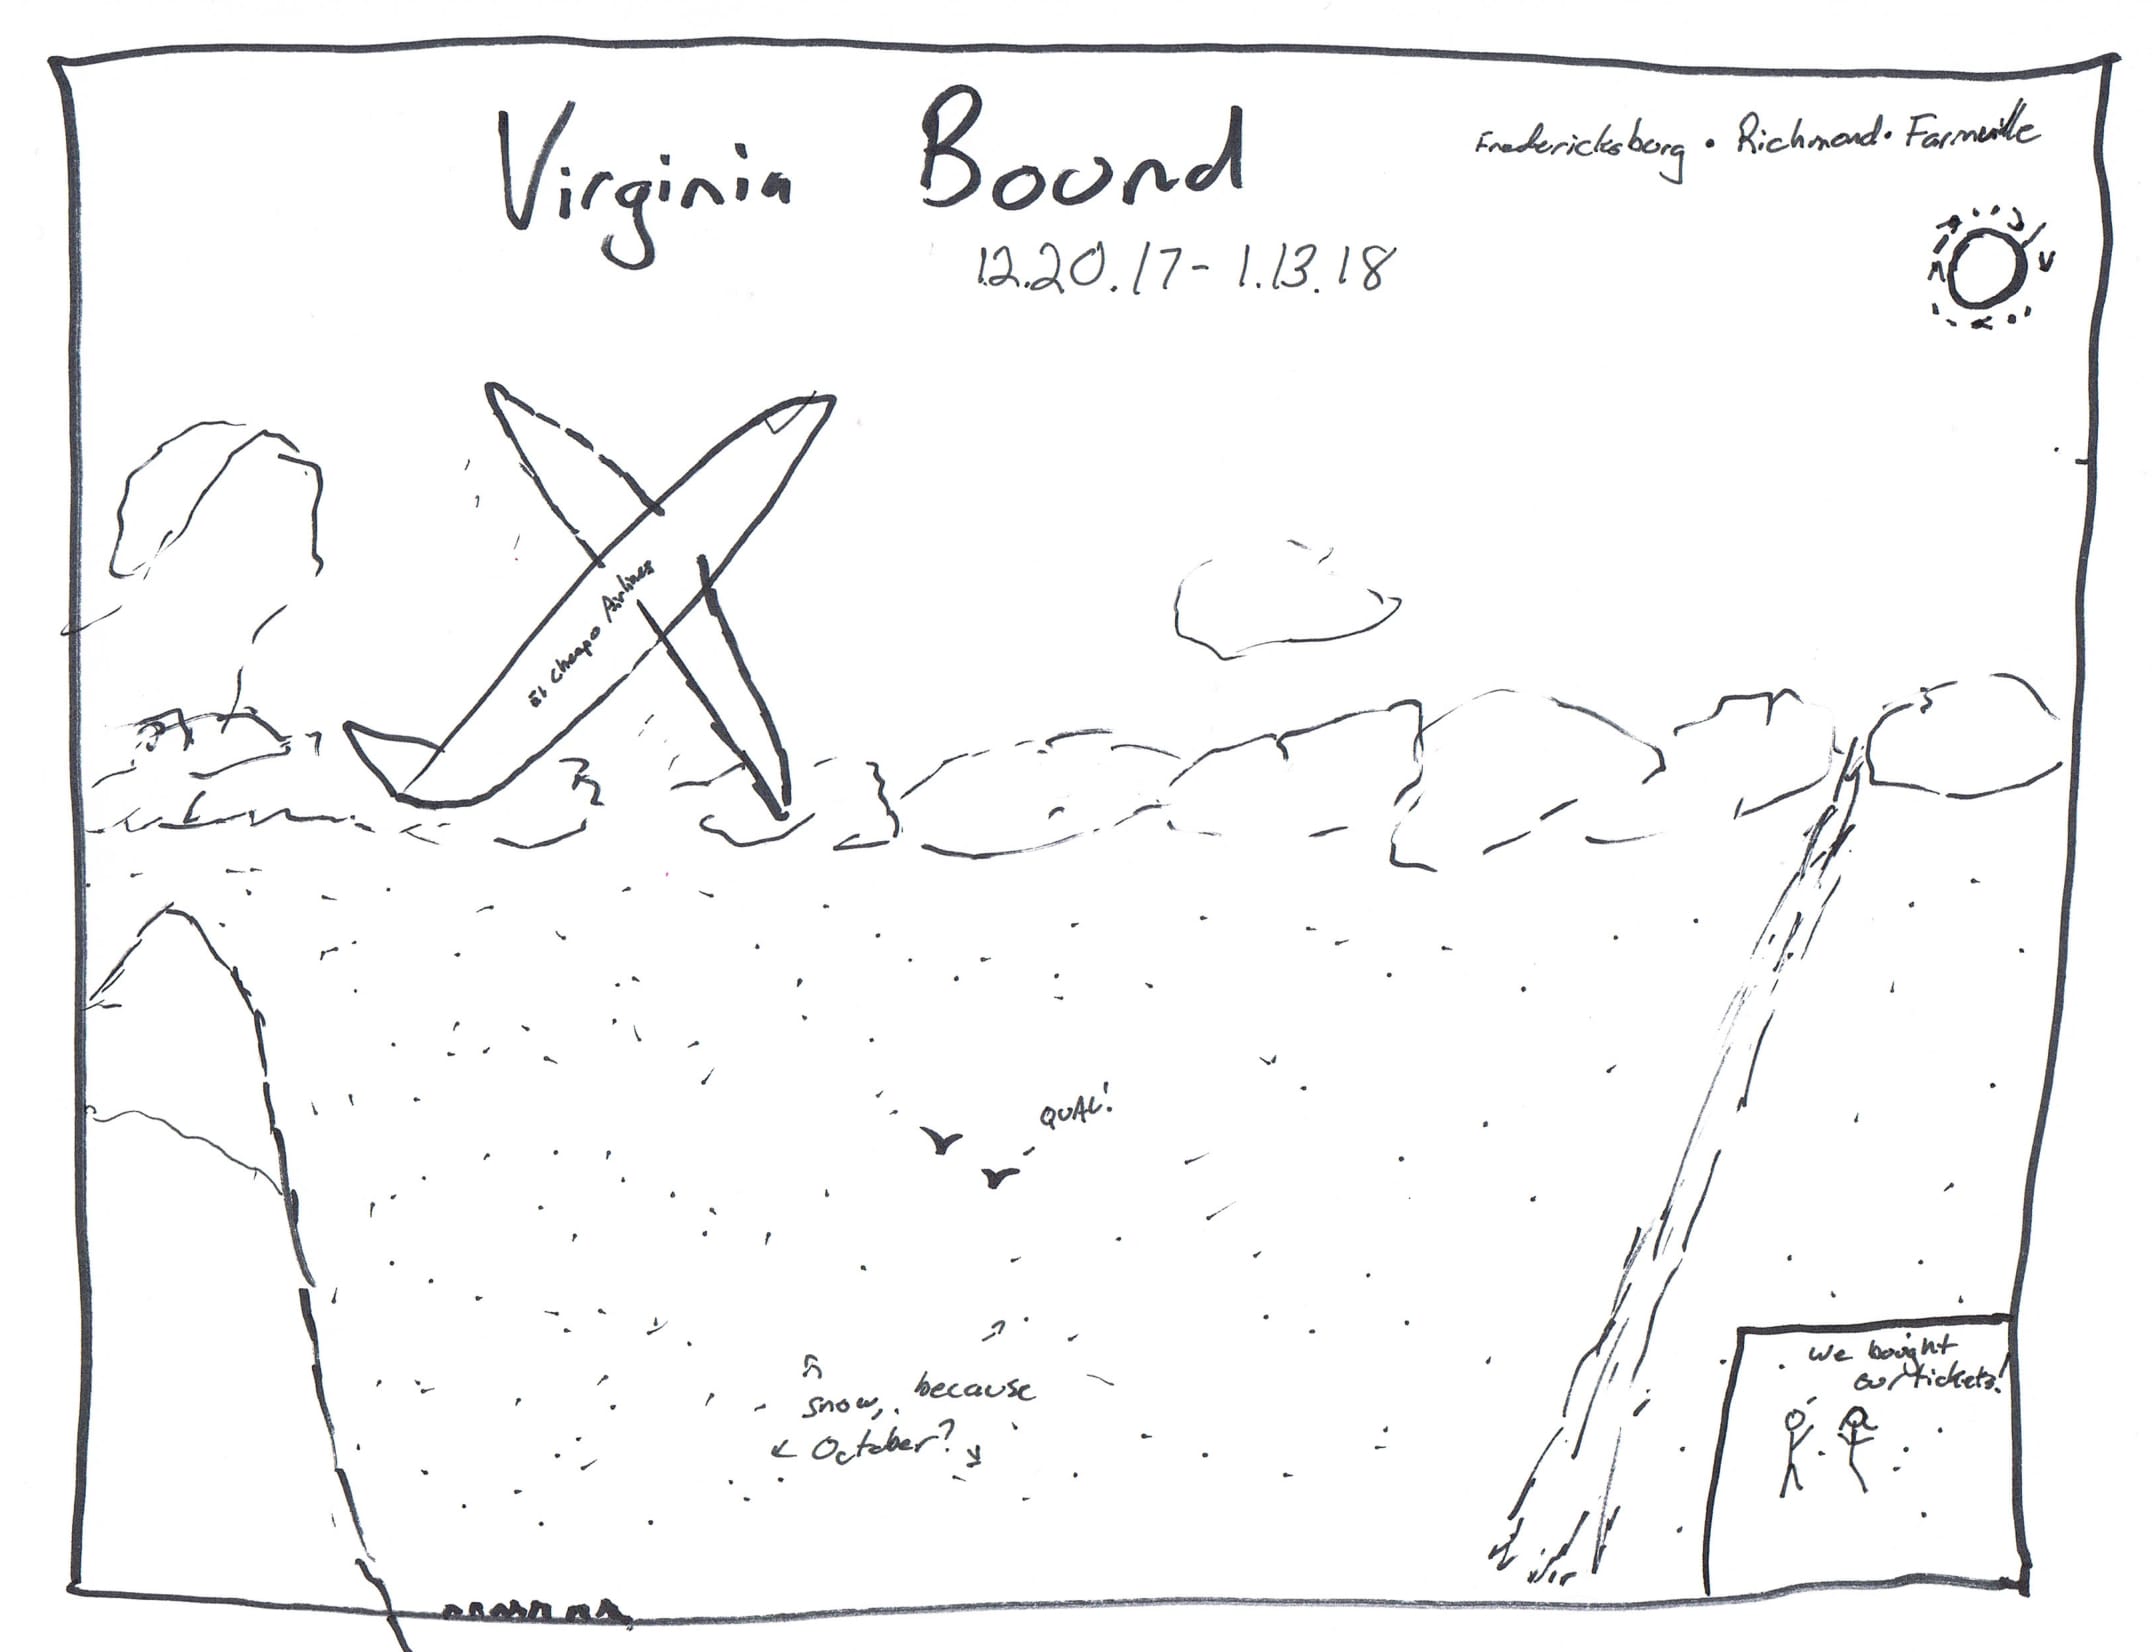 Virginia Bound
12.20.17 - 1.13.18
Fredericksburg • Richmond • Farmville
El Cheapo Airlines
QUAL!
snow, because
October?
we bought
our tickets!